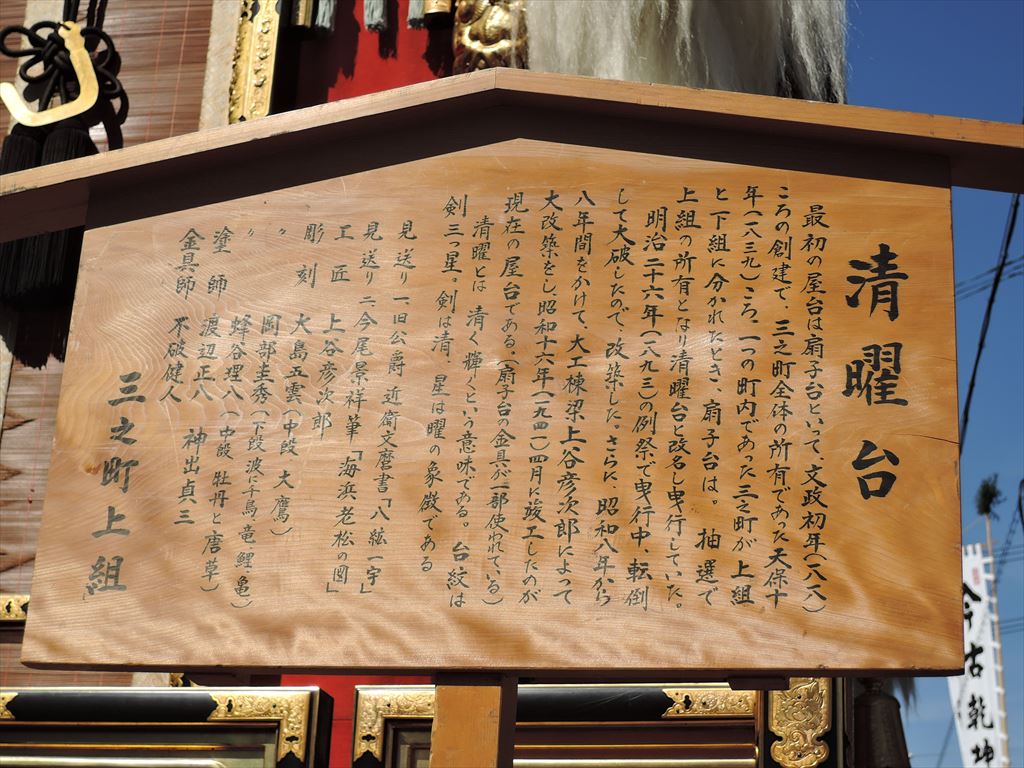 清曜台
最初の屋台は扇子台といて、文政初年(一八一八)
ころの創建で、三之町全体の所有であった天保十
年(一八三九)ころ、一つの町内であった三之町が上組
と下組に分かれたとき、扇子台は。抽選で
上組の所有となり清曜台と改名し曳行していた。
明治二十六年(一八九三)の例祭で曳行中、転倒
して大破したので、改築した。さらに、昭和八年から
八年間をかけて、大工棟梁、上谷彦次郎によって
大改築をし、昭和十六年(一九四一)四月に竣工したのが
現在の屋台である。(扇子台の金具が一部使われている)
清曜とは、清く輝くという意味である。台紋は
剣三つ星。剣は清、星は曜の象徴である
見送り一 旧公爵 近衛文麿書「八紘一宇」
見送り二 今尾景祥筆「海浜老松の図」
工匠 上谷彦次郎
彫刻 大島五雲(中段 大鷹)
〃 岡部圭秀(下段 波に千鳥、竜、鯉、亀)
〃 蜂谷理八(中段 牡丹と唐草)
塗師 渡辺正八 神出貞三
金具師 不破健人
三之町上組
今古乾坤